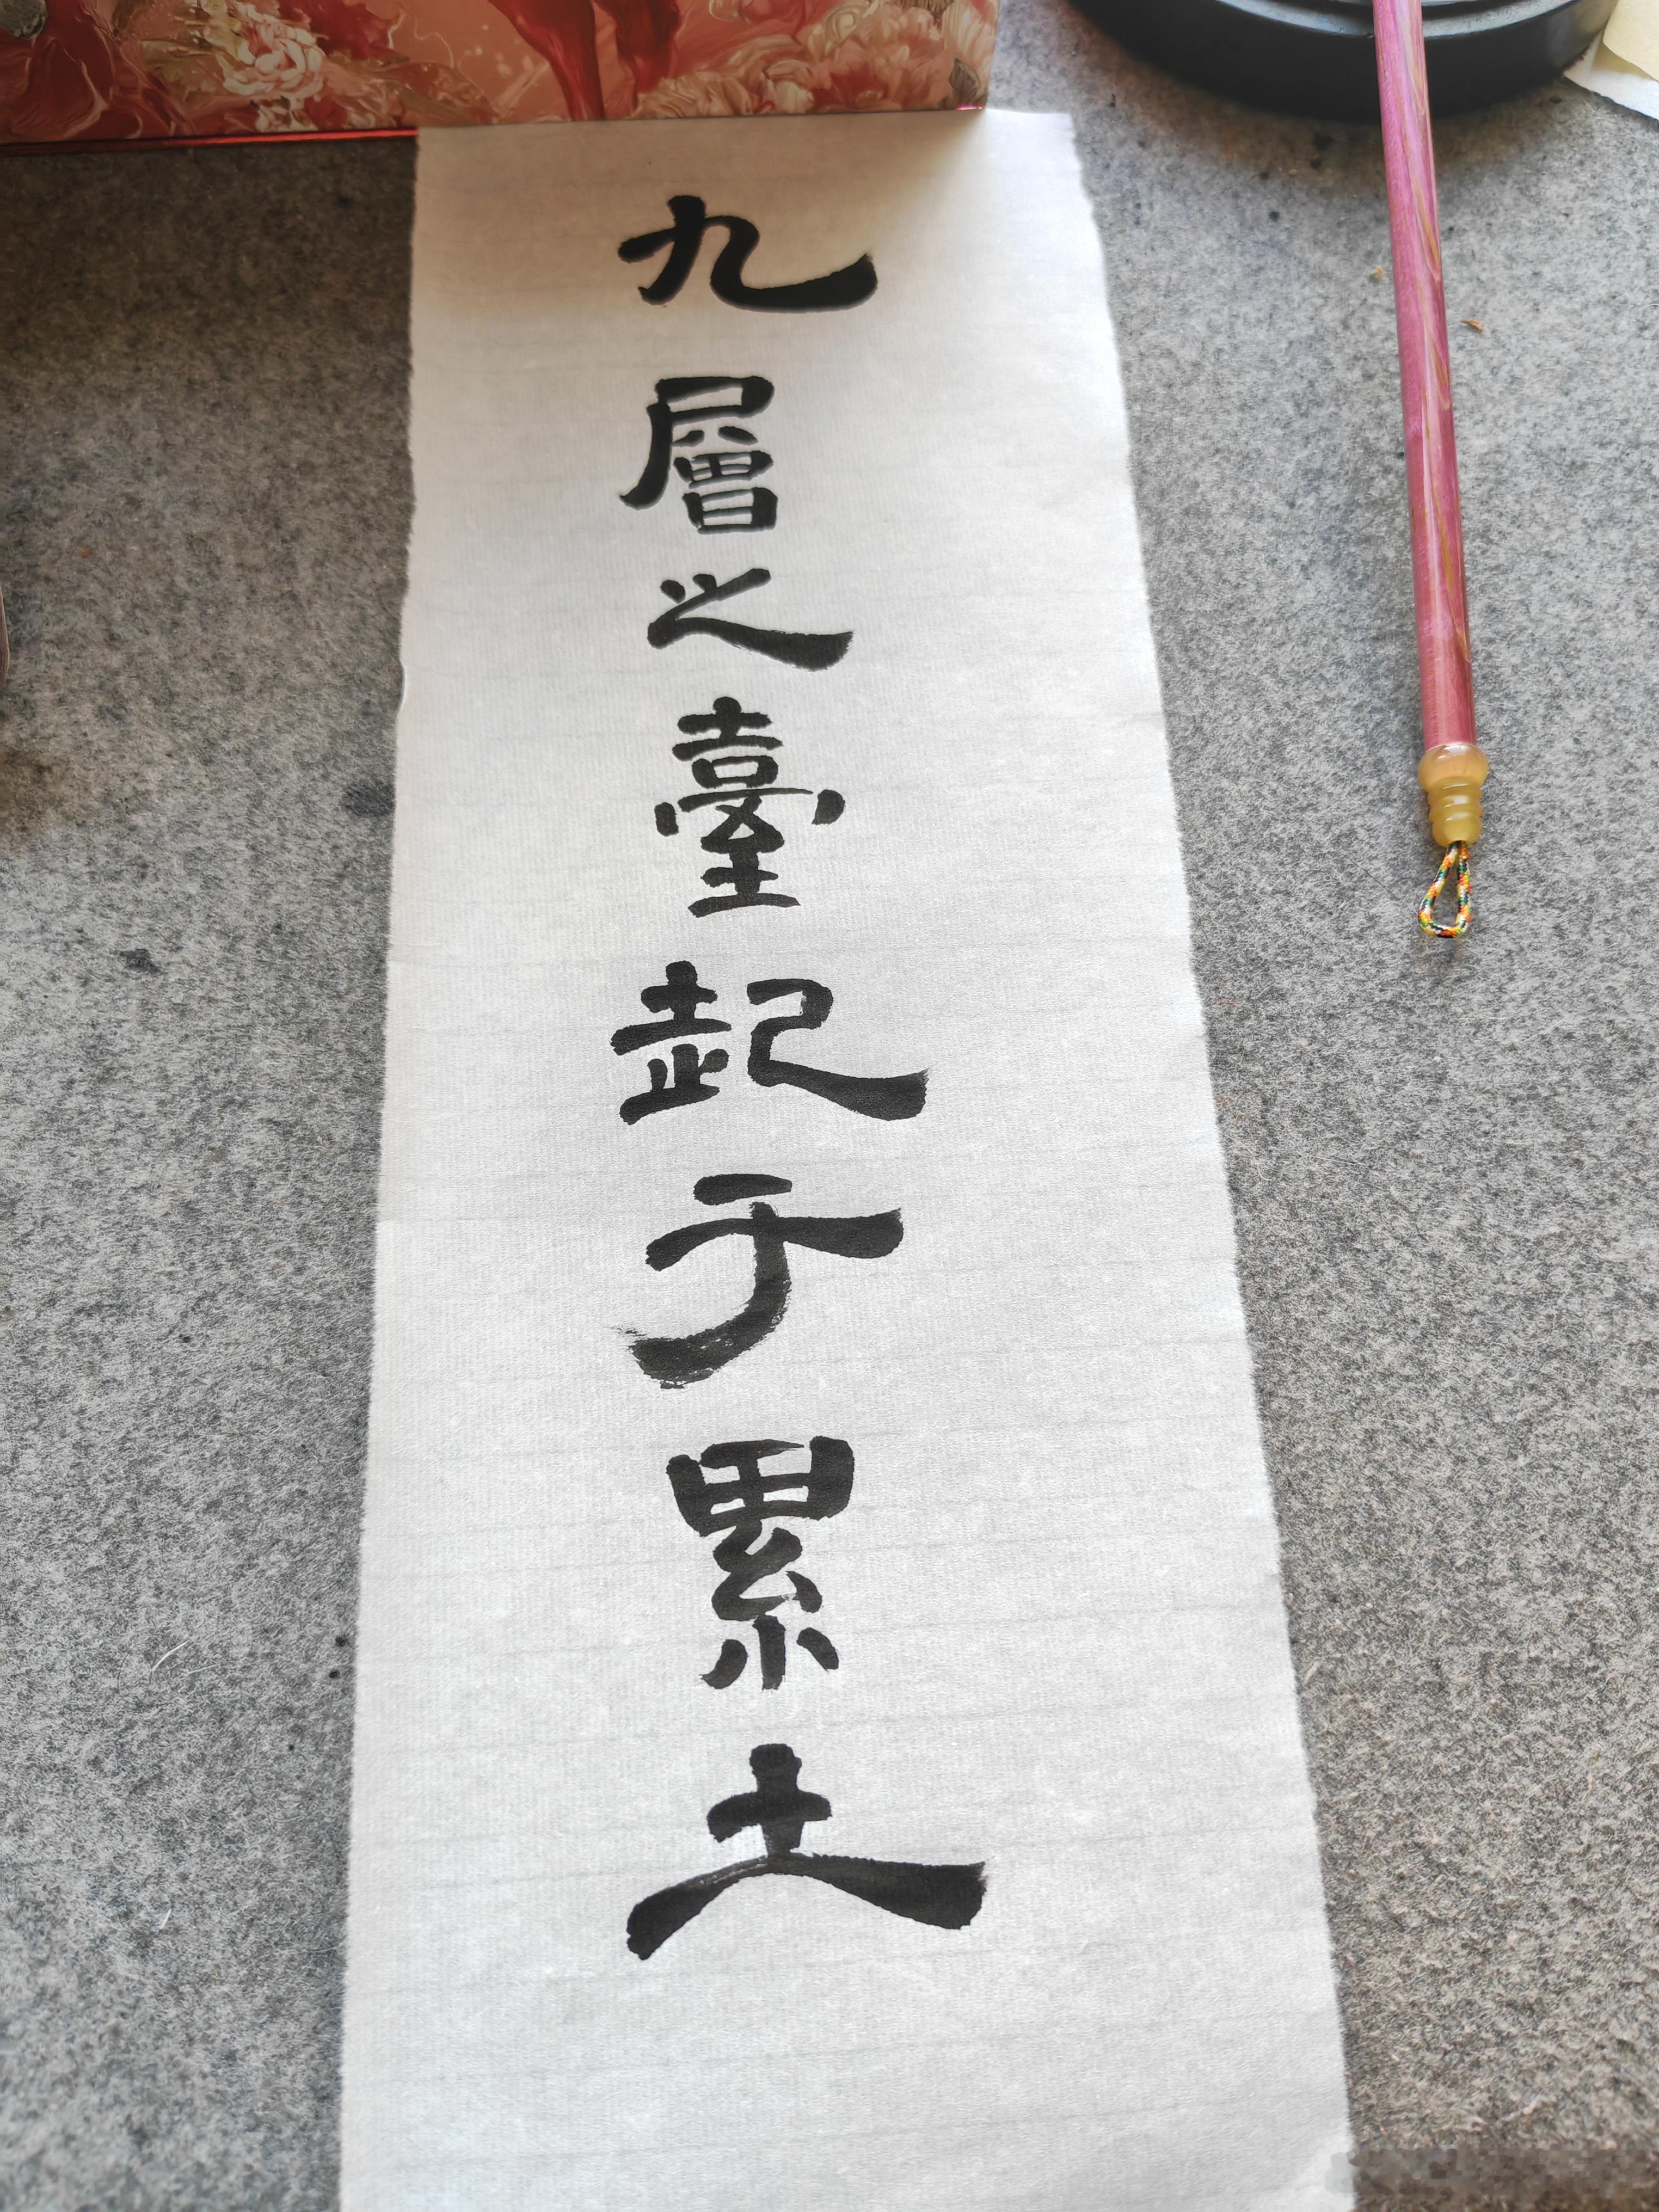 九層之臺起于累土